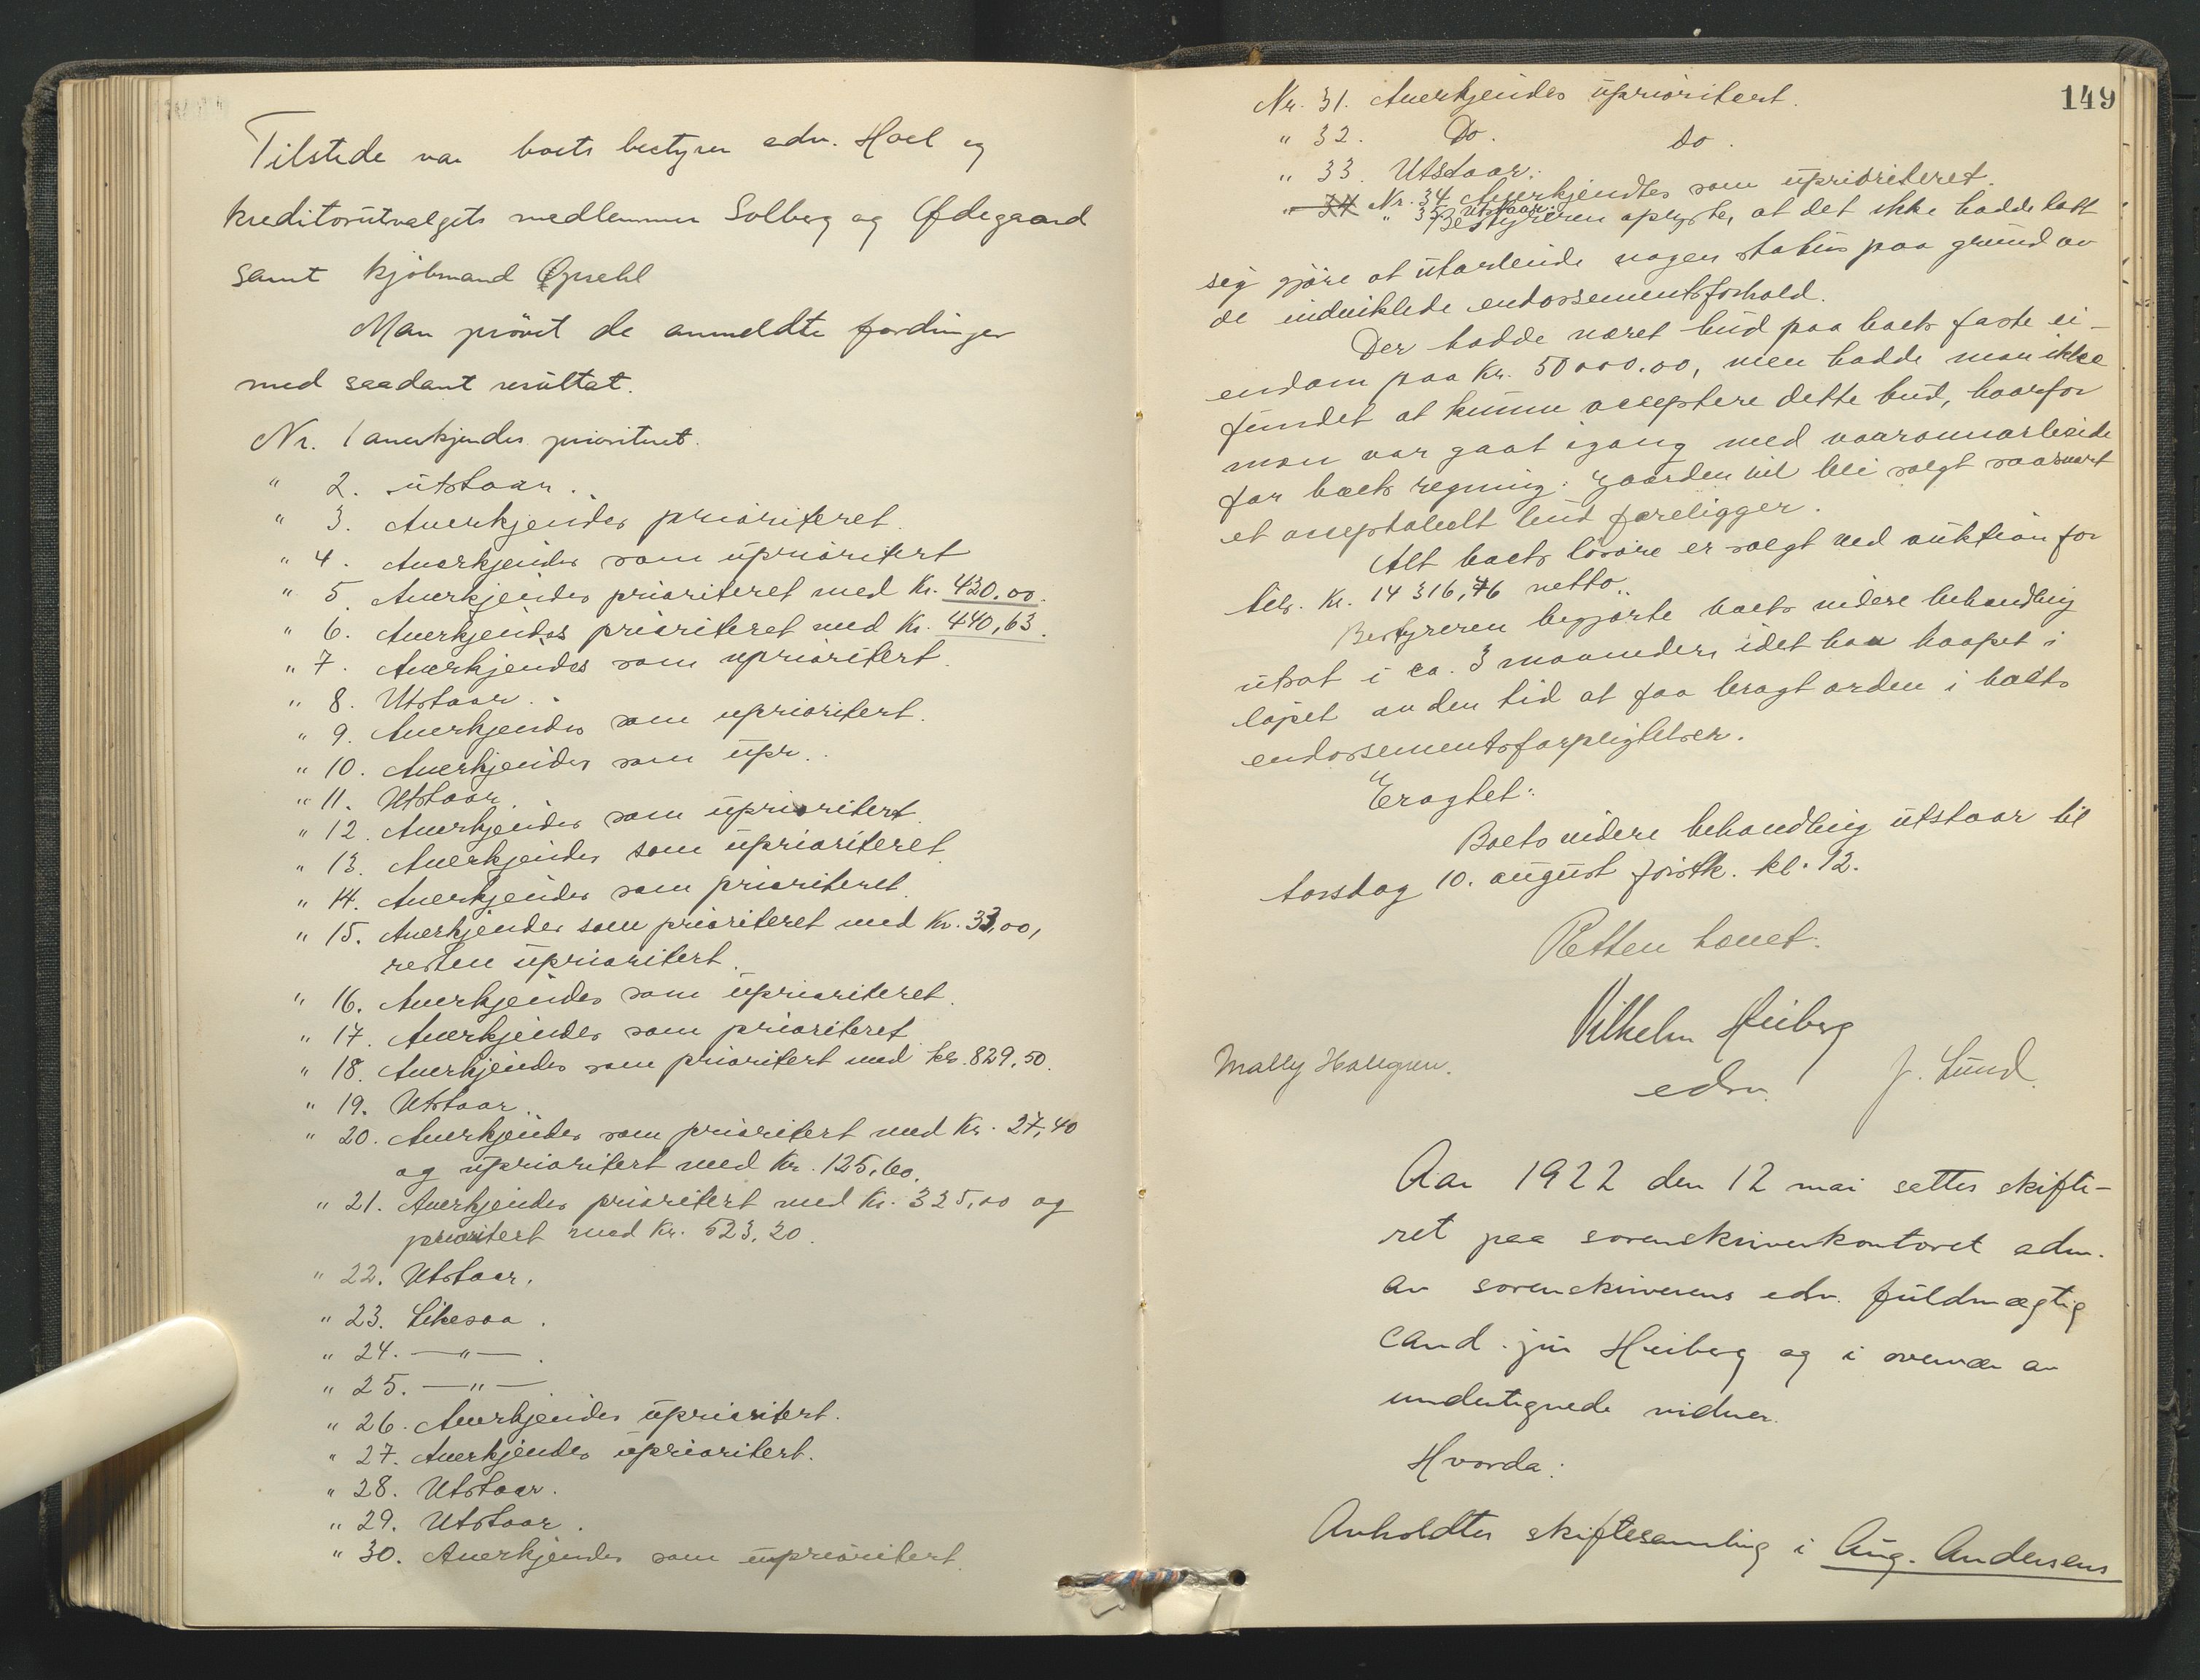 Tilstede var boets bestyrer edv. Hoel og
kreditorutvalgets medlemmer Solberg og Ødegaard
samt kjøbmand Opsehl
Man prøvet de anmeldte fordringer
med saadant resultat.
Nr. 1 anerkjendes prioritert.
" 2. utstaar.
" 3. Anerkjendes prioriteret.
" 4. Anerkjendes som uprioritert
" 5. Anerkjendes prioriteret med Kr. 430.00.
" 6. Anerkjendes prioriteret med Kr. 440,63.
" 7. Anerkjendes som uprioritert.
" 8. Utstaar.
" 9. Anerkjendes som uprioritert.
" 10. Anerkjendes som upr.
" 11. Utstaar.
" 12. Anerkjendes som uprioritert.
" 13. Anerkjendes som uprioriteret.
" 14. Anerkjendes som prioriteret.
" 15. Anerkjendes som prioriteret med Kr. 33,00,
resten uprioritert.
" 16. Anerkjendes som uprioriteret.
" 17. Anerkjendes som prioriteret
" 18. Anerkjendes som prioritert med kr. 829.50.
" 19. Utstaar.
" 20. Anerkjendes som prioritert med Kr. 27,40
og uprioritert med Kr. 125.60.
" 21. Anerkjendes prioritert med Kr. 325,00 og
prioritert med Kr. 523.20.
" 22. Utstaar.
" 23. Likesaa.
" 24. —"—.
" 25. —"—
" 26. Anerkjendes uprioritert.
" 27. Anerkjendes uprioritert.
" 28. Utstaar.
" 29. Utstaar.
" 30. Anerkjendes som uprioritert.
149
Nr. 31. Anerkjendes uprioritert.
" 32. Do. Do.
" 33. Utstaar.
" 34 Nr. 34 Anerkjendtes som uprioriteret.
" 35 Utstaar.
Bestyreren oplyste, at det ikke hadde latt
sig gjøre at utarbeide nogen status paa grund av
de indviklede endossementsforhold.
Der hadde været bud paa boets faste ei-
endom paa Kr. 50000.00, men hadde man ikke
fundet at kunne acceptere dette bud, hvorfor
man var gaat igang med vaaronnarbeide
for boets regning. Gaarden vil bli solgt saasnart
et acceptabelt bud foreligger.
Alt boets løsøre er solgt ved auktion for
tils. Kr. 14 316,76 netto.
Bestyreren begjærte boets videre behandling
utsat i ca. 3 maaneder, idet han haapet i
løpet av den tid at faa bragt orden i boets
endossementsforpligtelser.
Eragtet:
Boets videre behandling utstaar til
torsdag 10. august førstk. kl. 12.
Retten hævet.
Vilhelm Heiberg
edv.
Mally Hallgren.
J. Lund.
Aar 1922 den 12 mai settes skifte-
ret paa sorenskriverkontoret adm.
av sorenskriverens edv. fuldmægtig
cand. jur Heiberg og i overvær av
undertegnede vidner.
Hvorda:
Avholdtes skiftesamling i Aug. Andersens